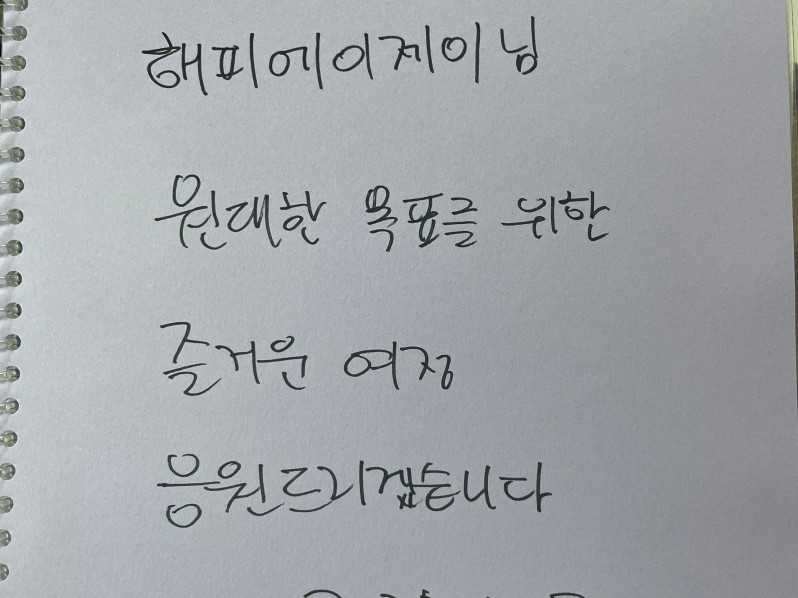 해피에이제이님
원대한 목표를 위한
즐거운 여정
응원드리겠습니다